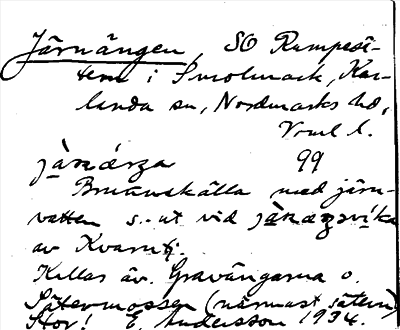 Järnängen, SO Rumpesä-
tern i Smolmark, Kar-
landa sn, Nordmarks hd,
Vrml l.
järn̄äŋa 99
Brunnskälla med järn-
vatten s.-ut vid
av Kvarntj.
Kallas äv. Gravängarna o.
Sätermossen (närmast sätern)
Stor! E. Andersson 1934.